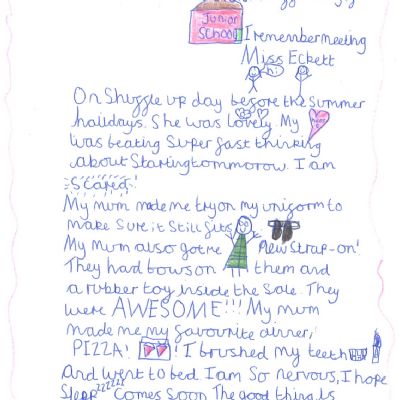 Junior
School
I remember meeting
Miss Eckett
hi
On Shuffle up day before the Summer
halidays. She was lovely. My
was beating Super fast thinking
about Starting tommorow. I am
Scared!
My mum made me try on my uniform to
make Sure it Still fits
My Mum also got me New Strap-on!
They had bows on them and
a rubber toy inside the Sole. They
were AWESOME!!! My mum
made me my favourite dinner,
PIZZA! ! I brushed my teeth
And went to bed I am So nervous, I hope
Sleep zzzzzz Comes Soon The good thing is